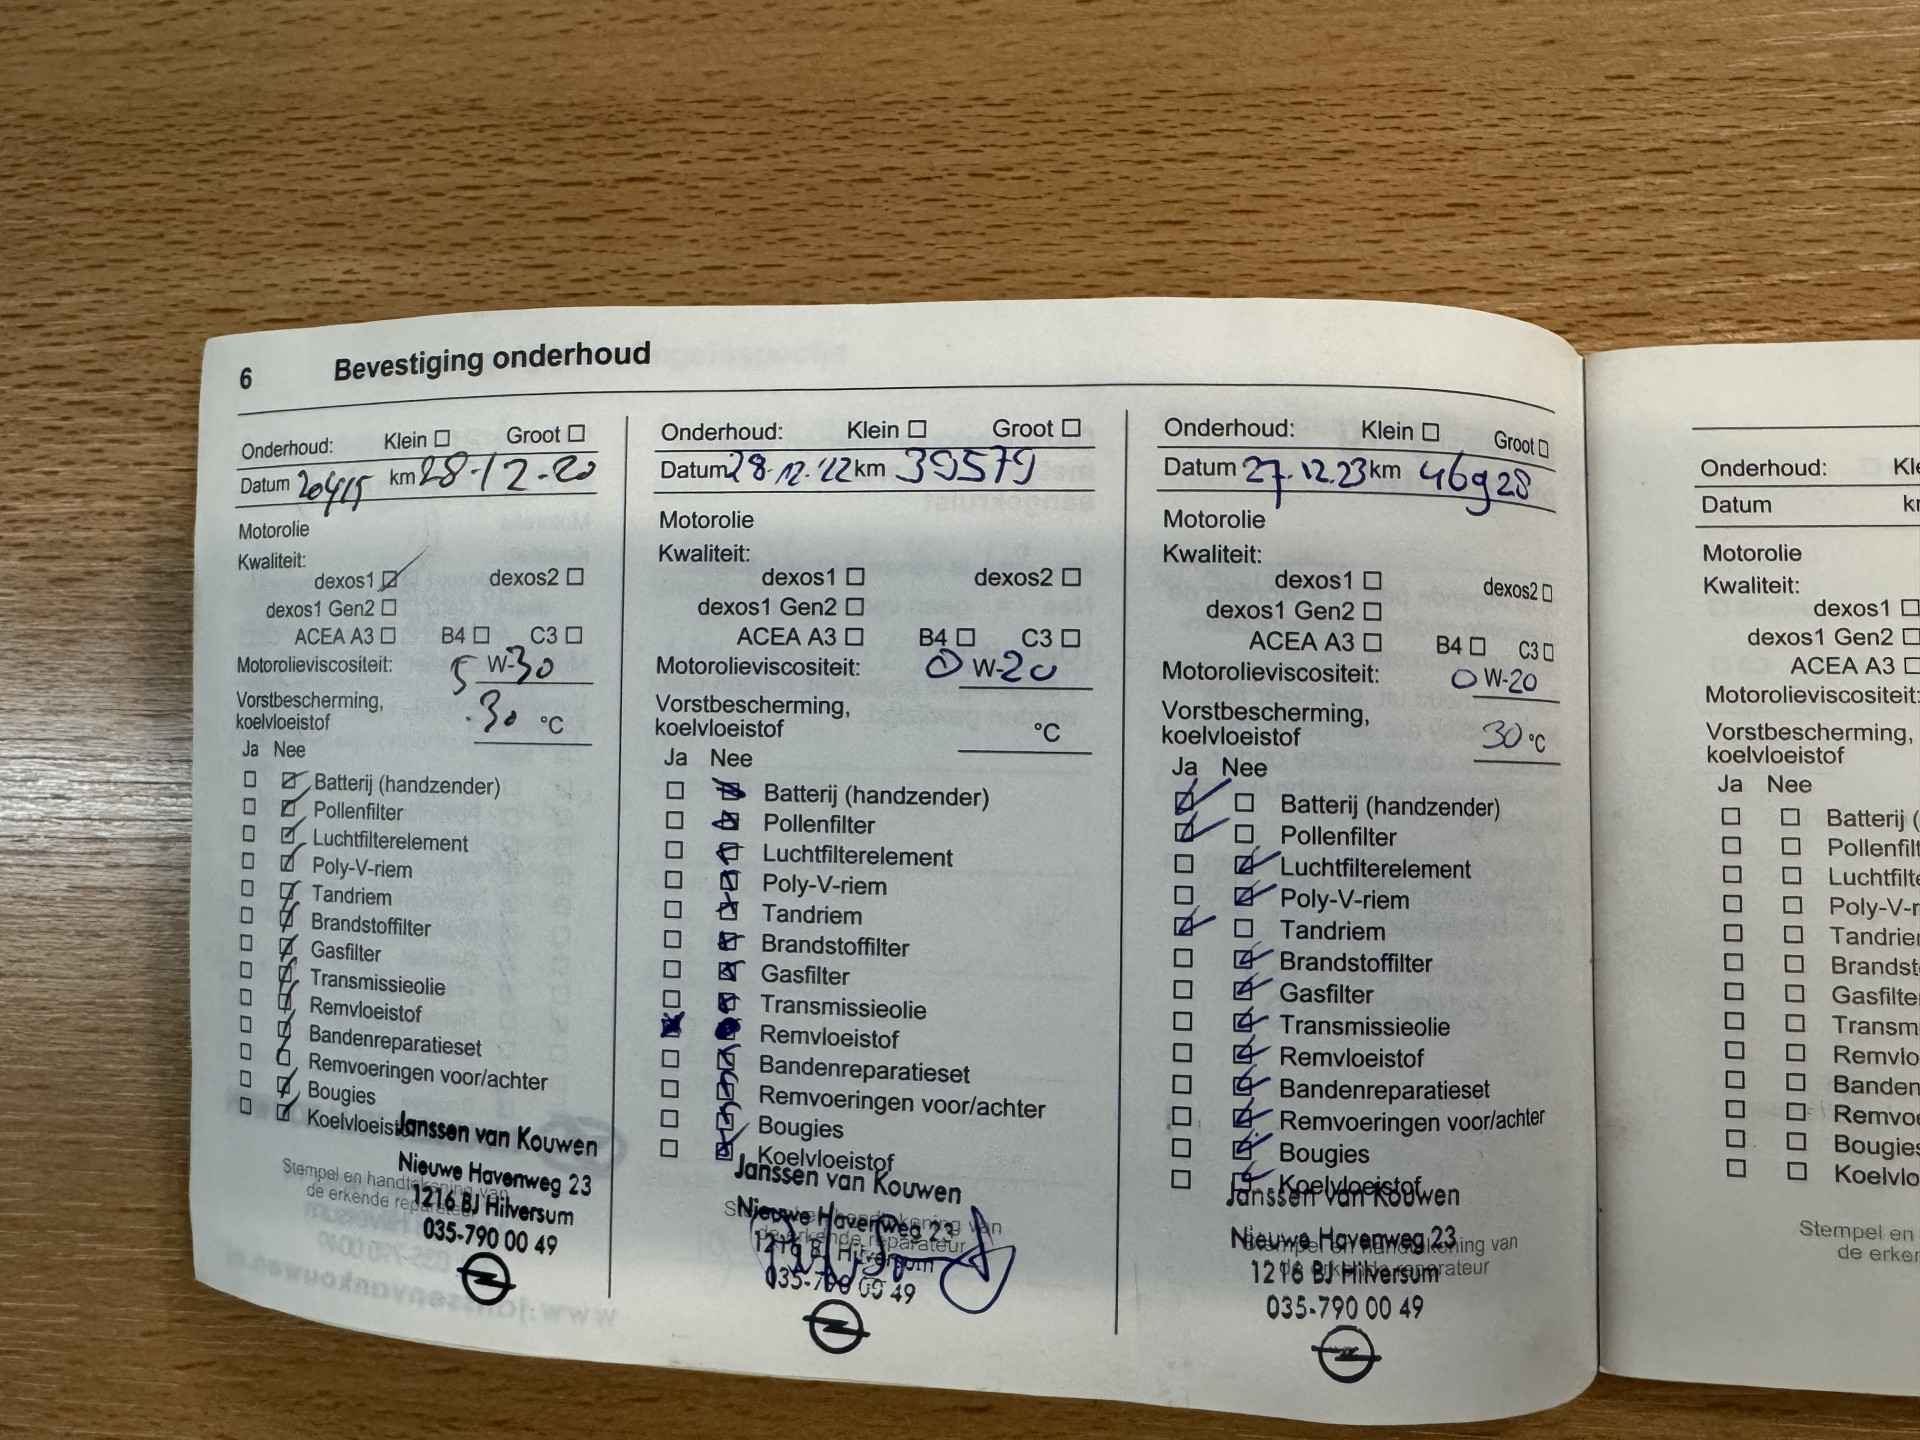 6 Bevestiging onderhoud
Onderhoud: Klein Groot
Datum 20415 km 28-12-20
Motorolie
Kwaliteit:
dexos1 dexos2
dexos1 Gen2
ACEA A3 B4 C3
Motorolieviscositeit: 5 W-30
Vorstbescherming,
koelvloeistof -30 °C
Ja Nee
Batterij (handzender)
Pollenfilter
Luchtfilterelement
Poly-V-riem
Tandriem
Brandstoffilter
Gasfilter
Transmissieolie
Remvloeistof
Bandenreparatieset
Remvoeringen voor/achter
Bougies
Koelvloeistof
Janssen van Kouwen
Nieuwe Havenweg 23
1216 BJ Hilversum
035-790 00 49
Stempel en handtekening van
de erkende reparateur
Onderhoud: Klein Groot
Datum 28-12-'22 km 39579
Motorolie
Kwaliteit:
dexos1 dexos2
dexos1 Gen2
ACEA A3 B4 C3
Motorolieviscositeit: 0 W-20
Vorstbescherming,
koelvloeistof °C
Ja Nee
Batterij (handzender)
Pollenfilter
Luchtfilterelement
Poly-V-riem
Tandriem
Brandstoffilter
Gasfilter
Transmissieolie
Remvloeistof
Bandenreparatieset
Remvoeringen voor/achter
Bougies
Koelvloeistof
Janssen van Kouwen
Nieuwe Havenweg 23
1216 BJ Hilversum
035-790 00 49
Stempel en handtekening van
de erkende reparateur
Onderhoud: Klein Groot
Datum 27.12.23 km 46928
Motorolie
Kwaliteit:
dexos1 dexos2
dexos1 Gen2
ACEA A3 B4 C3
Motorolieviscositeit: 0 W-20
Vorstbescherming,
koelvloeistof 30 °C
Ja Nee
Batterij (handzender)
Pollenfilter
Luchtfilterelement
Poly-V-riem
Tandriem
Brandstoffilter
Gasfilter
Transmissieolie
Remvloeistof
Bandenreparatieset
Remvoeringen voor/achter
Bougies
Koelvloeistof
Janssen van Kouwen
Nieuwe Havenweg 23
1216 BJ Hilversum
035-790 00 49
Stempel en handtekening van
de erkende reparateur
Onderhoud: Kle
Datum k
Motorolie
Kwaliteit:
dexos1
dexos1 Gen2
ACEA A3
Motorolieviscositeit:
Vorstbescherming,
koelvloeistof
Ja Nee
Batterij (
Pollenfilt
Luchtfilte
Poly-V-r
Tandrie
Brandst
Gasfilte
Transm
Remvlo
Banden
Remvo
Bougies
Koelvlo
Stempel en
de erker